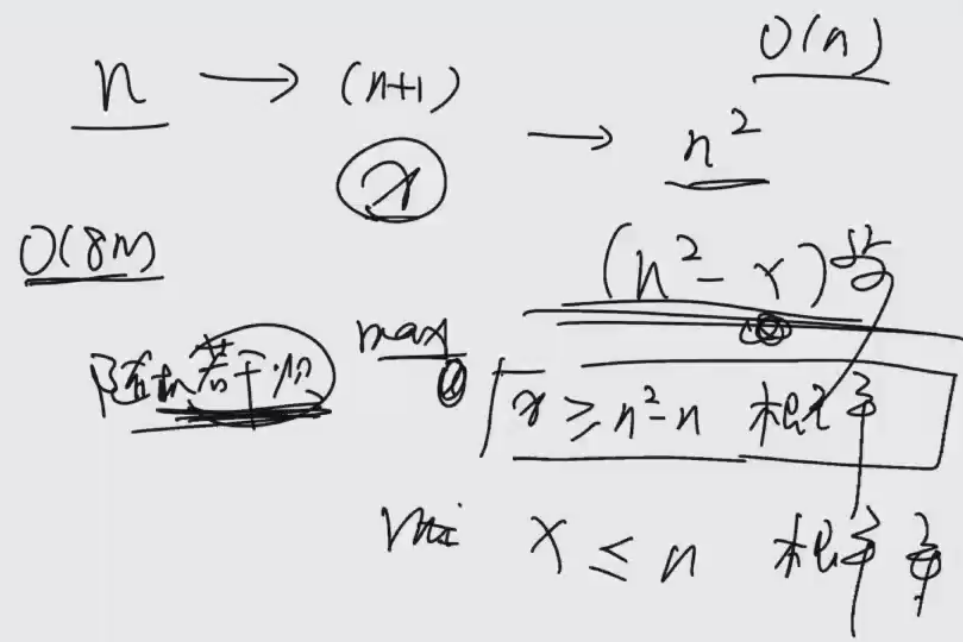 O(n)
n → (n+1) → n²
x
O(8n)
(n²-x)
随机若干次
max
x ≥ n²-n 概率
x ≤ n 概率